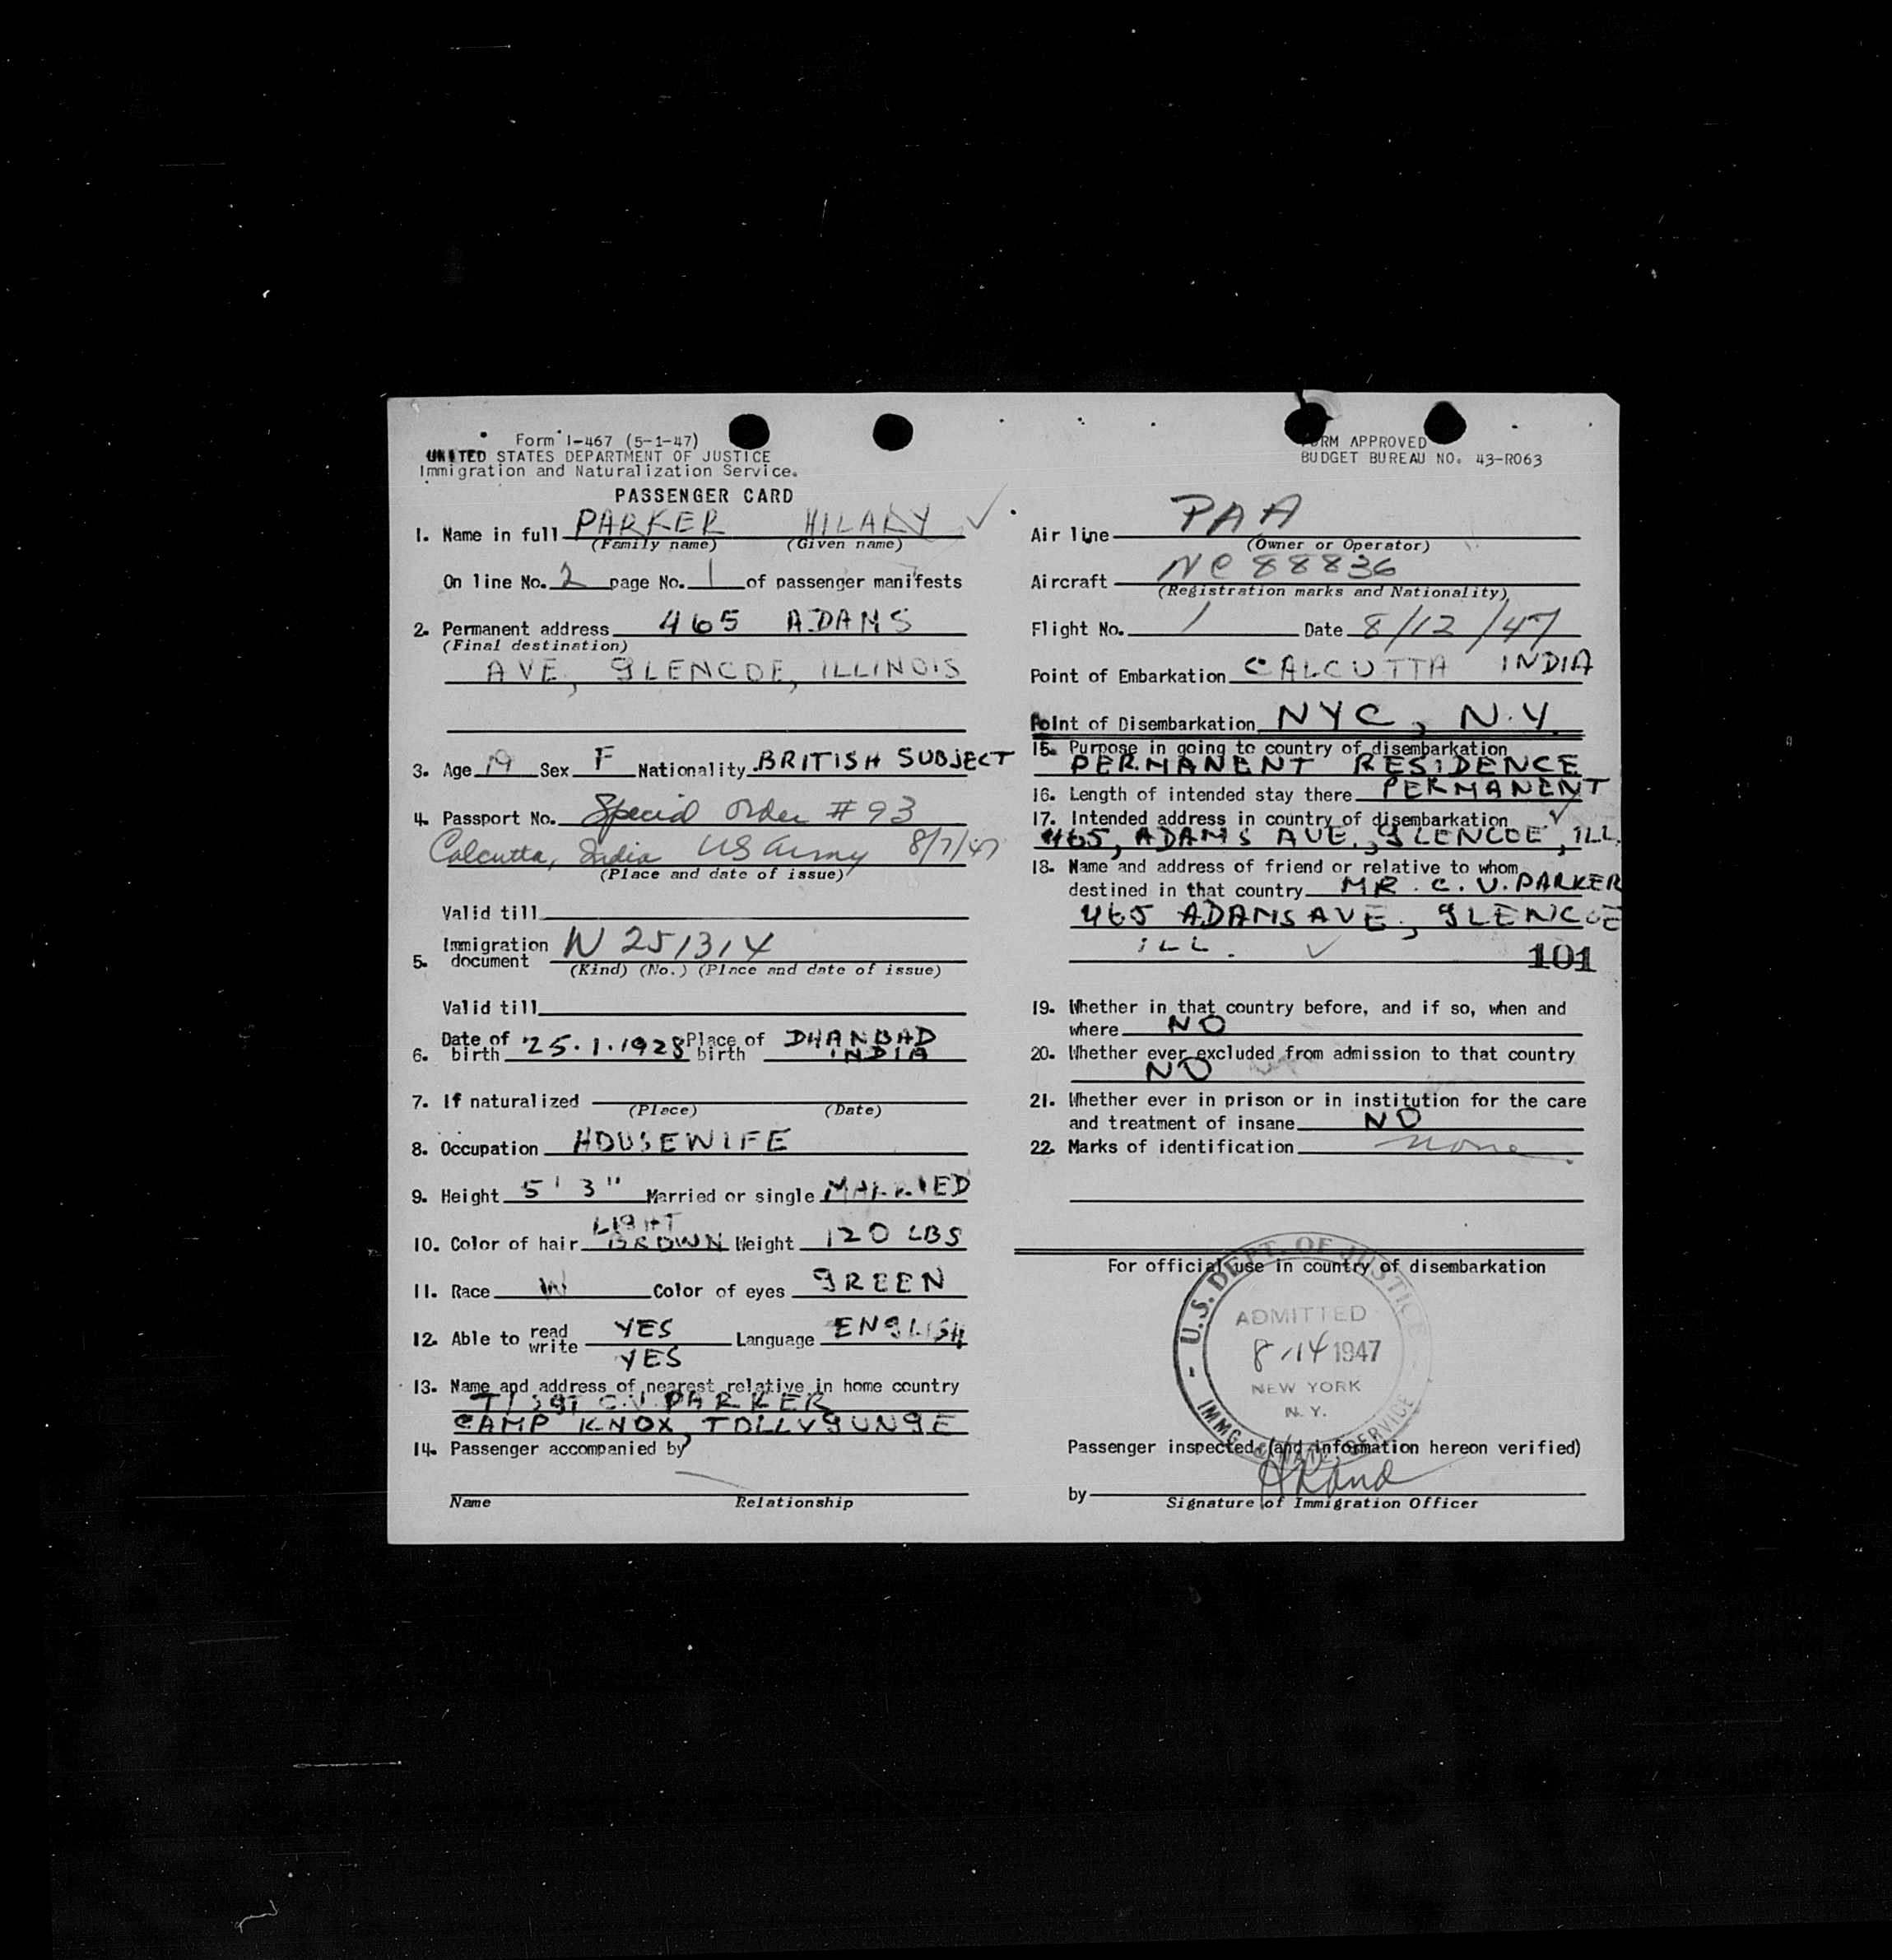 Form I-467 (5-1-47)
UNITED STATES DEPARTMENT OF JUSTICE
Immigration and Naturalization Service.
PASSENGER CARD
1. Name in full PARKER HILARY
(Family name) (Given name)
On line No. 2 page No. 1 of passenger manifests
2. Permanent address 465 ADAMS
(Final destination)
AVE, GLENCOE, ILLINOIS
3. Age 19 Sex F Nationality BRITISH SUBJECT
4. Passport No. Special Order # 93
Calcutta, India US Army 8/7/47
(Place and date of issue)
Valid till
5. Immigration document W 251314
(Kind) (No.) (Place and date of issue)
Valid till
6. Date of birth 25.1.1928 Place of birth DHANBAD
INDIA
7. If naturalized
(Place) (Date)
8. Occupation HOUSEWIFE
9. Height 5' 3" Married or single MARRIED
10. Color of hair LIGHT BROWN Weight 120 LBS
11. Race W Color of eyes GREEN
12. Able to read YES Language ENGLISH
write YES
13. Name and address of nearest relative in home country
T/SGT C.V. PARKER
CAMP KNOX, TOLLYGUNGE
14. Passenger accompanied by
Name Relationship
FORM APPROVED
BUDGET BUREAU NO. 43-R063
Air line PAA
(Owner or Operator)
Aircraft NC 88836
(Registration marks and Nationality)
Flight No. 1 Date 8/12/47
Point of Embarkation CALCUTTA INDIA
Point of Disembarkation NYC, N.Y.
15. Purpose in going to country of disembarkation
PERMANENT RESIDENCE
16. Length of intended stay there PERMANENT
17. Intended address in country of disembarkation
465, ADAMS AVE., GLENCOE, ILL.
18. Name and address of friend or relative to whom
destined in that country MR. C. V. PARKER
465 ADAMS AVE, GLENCOE
ILL.
101
19. Whether in that country before, and if so, when and
where NO
20. Whether ever excluded from admission to that country
NO
21. Whether ever in prison or in institution for the care
and treatment of insane NO
22. Marks of identification none
For official use in country of disembarkation
U.S. DEPT. OF JUSTICE
ADMITTED
8-14 1947
NEW YORK
N.Y.
IMMG. SERVICE
Passenger inspected (and information hereon verified)
by
Signature of Immigration Officer